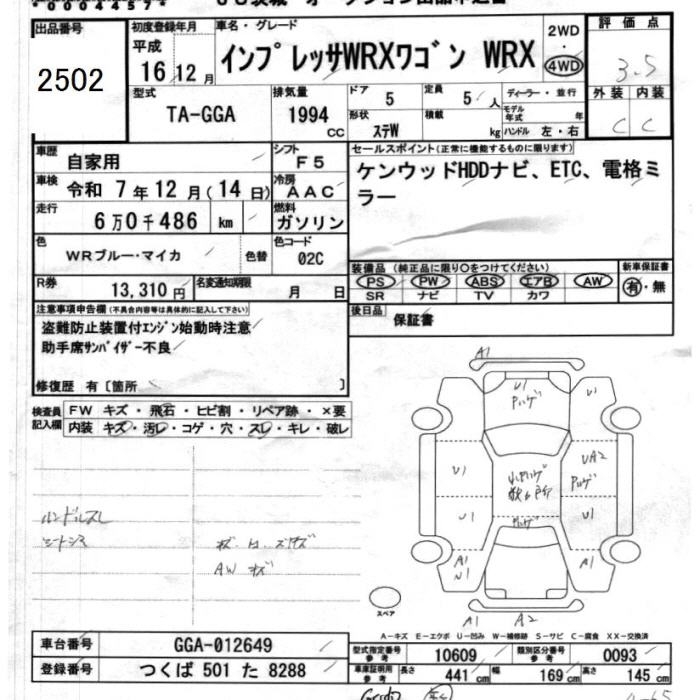 出品番号
2502
初度登録年月
平成
16 12 月
車名・グレード
インプレッサWRXワゴン WRX
2WD
・
4WD
評価点
3.5
外装 内装
C C
型式
TA-GGA
排気量
1994
CC
ドア
5
定員
5 人
形状
ステW
積載
kg
ディーラー・並行
モデル
年式 年
ハンドル 左・右
車歴
自家用
シフト
F5
車検
令和 7 年 12 月 ( 14 日)
冷房
AAC
走行
6万0千486 km
燃料
ガソリン
色
WRブルー・マイカ
色替
色コード
02C
R券
13,310円
名変通知期限
月 日
セールスポイント(正常に機能するものに限ります)
ケンウッドHDDナビ、ETC、電格ミ
ラー
装備品 (純正品に限り○をつけてください)
新車保証書
PS PW ABS エアB AW
有・無
SR ナビ TV カワ
後日品
保証書
注意事項申告欄(不具合内容等は具体的に記入して下さい)
盗難防止装置付エンジン始動時注意
助手席サンバイザー不良
修復歴 有〔箇所 〕
検査員
記入欄
FW キズ・飛石・ヒビ割・リペア跡・×要
内装 キズ・汚レ・コゲ・穴・スレ・キレ・破レ
ハンドルスレ
AW キズ
A1
U1
U1
U1
UA2
U1
U1
A1
A1
A1
A2
スペア
A-キズ E-エクボ U-凹み W-補修跡 S-サビ C-腐食 XX-交換済
車台番号
GGA-012649
登録番号
つくば 501 た 8288
型式指定番号
参考
10609
類別区分番号
参考
0093
車庫証明用
参考
長さ 441 cm 幅 169 cm 高さ 145 cm